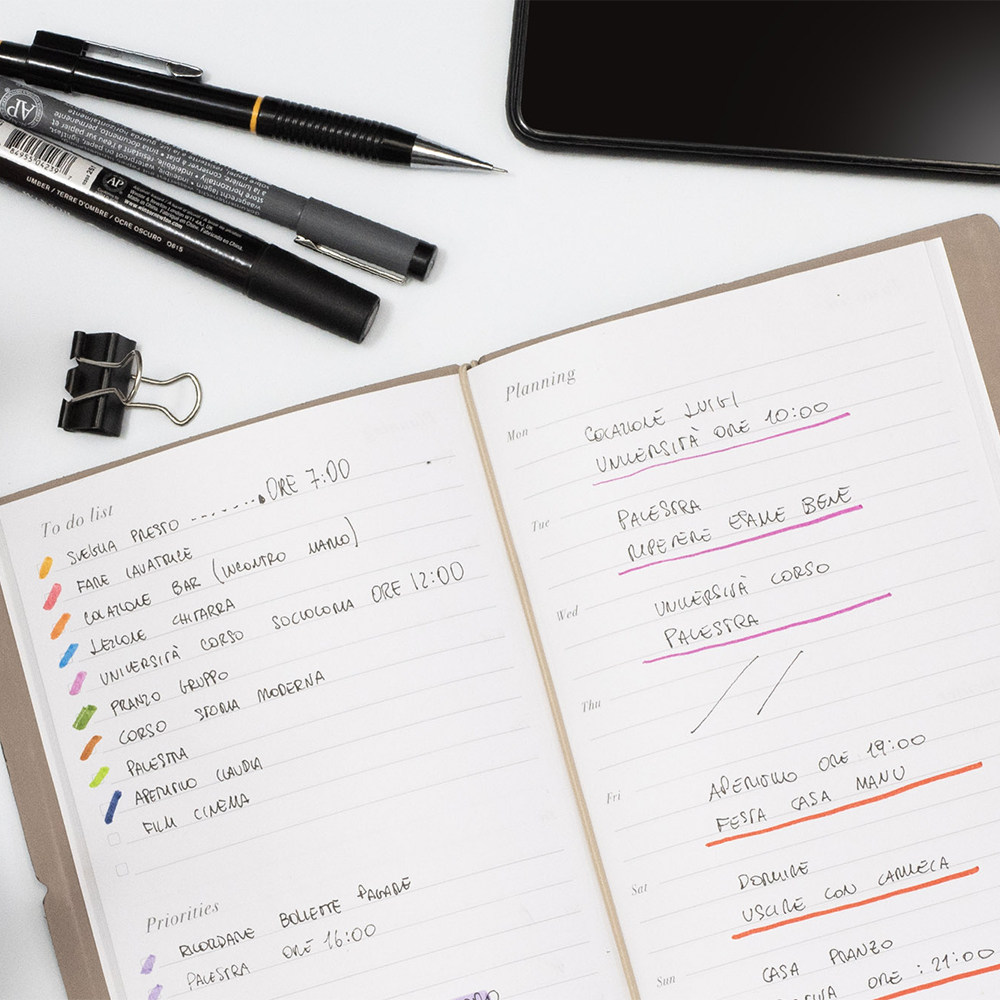 AP
UMBER / TERRE D'OMBRE / OCRE OSCURO O615
To do list
SVEGLIA PRESTO ........ORE 7:00
FARE LAVATRICE
COLAZIONE BAR (INCONTRO MARIO)
LEZIONE CHITARRA
UNIVERSITÀ CORSO SOCIOLOGIA ORE 12:00
PRANZO GRUPPO
CORSO STORIA MODERNA
PALESTRA
APERITIVO CLAUDIA
FILM CINEMA
Priorities
RICORDARE BOLLETTE PAGARE
PALESTRA ORE 16:00
Planning
Mon COLAZIONE LUIGI
UNIVERSITÀ ORE 10:00
Tue PALESTRA
RIPETERE ESAME BENE
Wed UNIVERSITÀ CORSO
PALESTRA
Thu //
Fri APERITIVO ORE 19:00
FESTA CASA MANU
Sat DORMIRE
USCIRE CON CARMELA
Sun CASA PRANZO
ORE : 21:00